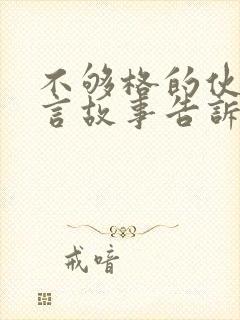 不够格的伙
言故事告訴
戒喑